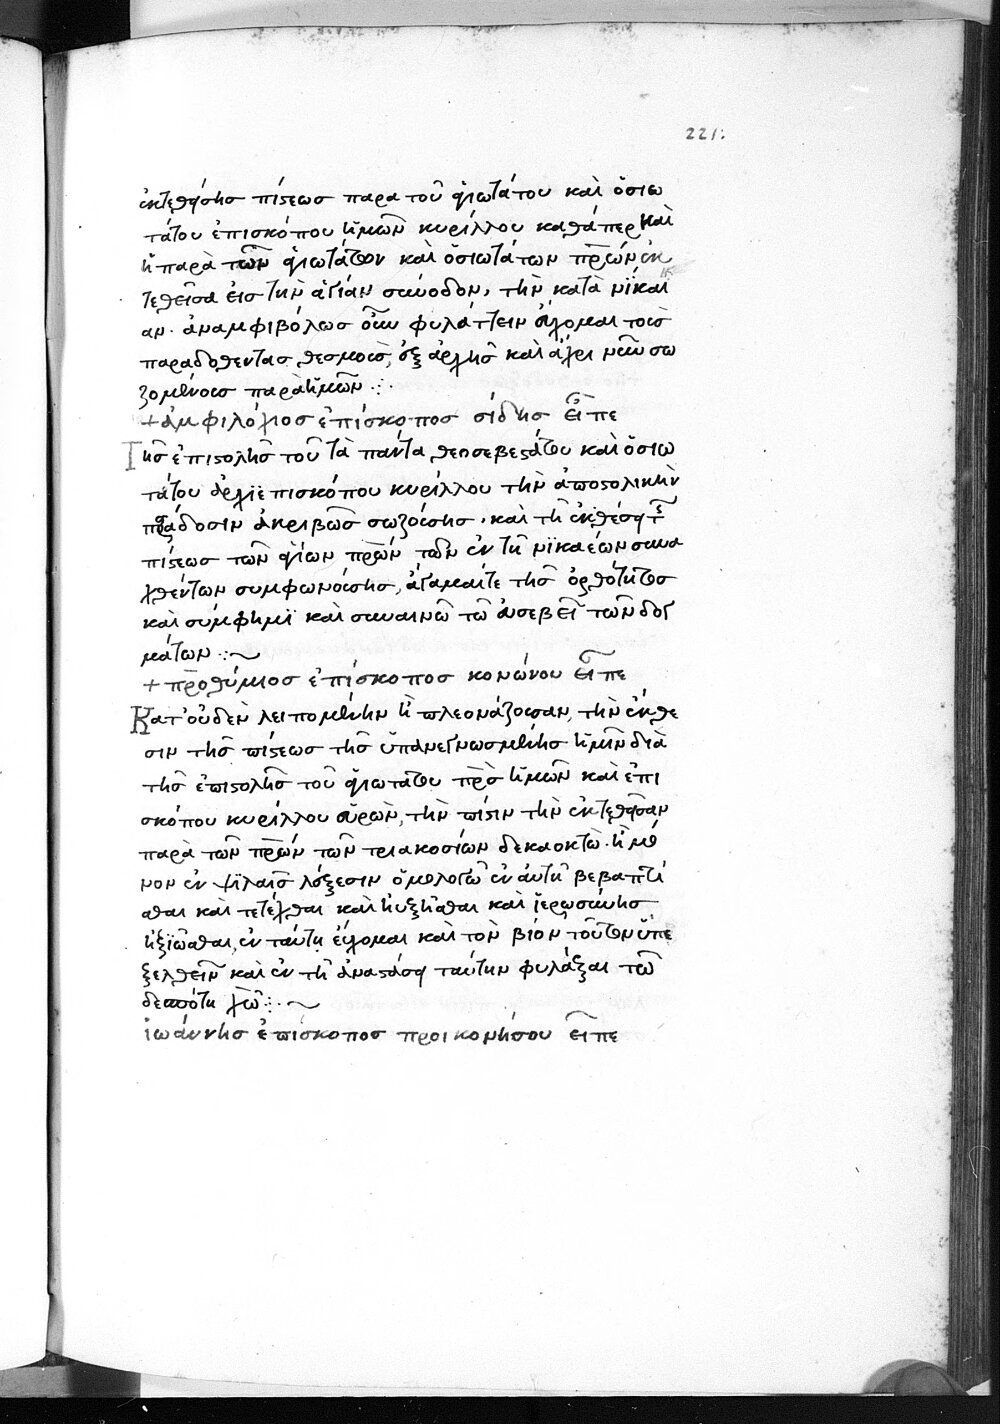 221.
ἐκτεθείσης πίστεως παρα τοῦ ἁγιωτάτου καὶ ὁσιω
τάτου ἐπισκόπου ἡμῶν κυρίλλου καθάπερ καὶ
ἡ παρὰ τῶν ἁγιωτάτων καὶ ὁσιωτάτων πρῶν ἐκ
τεθεῖσα εἰσ τὴν ἁγίαν σύνοδον, τὴν κατὰ νίκαι
αν. ἀναμφιβόλωσ οὖν φυλάττειν εὔχομαι τοὺσ
παραδοθεντασ θεσμοὺσ, ἐξ ἀρχῆσ καὶ ἄχρι νῦν σω
ζομένουσ παρ ἡμῶν :·
+ ἀμφιλόχιοσ ἐπίσκοποσ σίδησ εἶπε
Τῆσ ἐπιστολῆσ τοῦ τὰ πάντα θεοσεβεστάτου καὶ ὁσιω
τάτου ἀρχιεπισκόπου κυρίλλου τὴν ἀποστολικὴν
παράδοσιν ἀκριβῶσ σωζούσησ, καὶ τῇ ἐκθέσει τῆσ
πίστεωσ τῶν ἁγίων πρῶν τῶν ἐν τῇ νικαέων συνα
χθέντων συμφωνούσησ, ἄγαμαί τε τῆσ ὀρθότητοσ
καὶ σύμφημι καὶ συναινῶ τῶ εὐσεβεῖ τῶν δογ
μάτων :~
+ προθύμιοσ ἐπίσκοποσ κομάνου εἶπε
Κατ' οὐδὲν λειπομένην ἢ πλεονάζουσαν, τὴν ἔκθε
σιν τῆσ πίστεωσ τῆσ ὑπανεγνωσμένησ ἡμῖν διὰ
τῆσ ἐπιστολῆσ τοῦ ἁγιωτάτου πρσ ἡμῶν καὶ ἐπι
σκόπου κυρίλλου εὑρὼν, τὴν πίστιν τὴν ἐκτεθεῖσαν
παρὰ τῶν πρῶν τῶν τριακοσίων δεκαοκτὼ. ἢ μό
νον ἐν ψιλαῖσ λέξεσιν ὁμολογῶ ἐν αὐτῇ βεβαπτί
σθαι καὶ τετέχθαι καὶ ηὐξῆσθαι καὶ ἱερωσύνησ
ἠξιῶσθαι, ἐν ταύτῃ εὔχομαι καὶ τὸν βίον τοῦτον ὑπε
ξελθεῖν καὶ ἐν τῇ ἀναστάσει ταύτην φυλάξαι τῶ
δεσπότῃ χῶ :· ~
ἰωάννησ ἐπίσκοποσ προικονήσου εἶπε